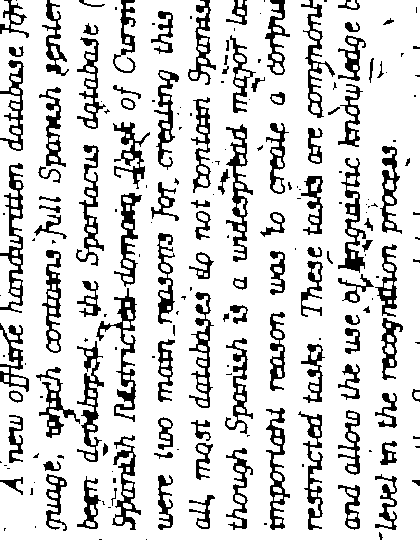 A new offline handwritten database for
guage, which contains full Spanish senten
been developed: the Spartacus database (
Spanish Restricted-domain Task of Cursiv
were two main reasons for creating this
all, most databases do not contain Spanis
though Spanish is a widespread major la
important reason was to create a corpus
restricted tasks. These tasks are commonl
and allow the use of linguistic knowledge b
level in the recognition process.